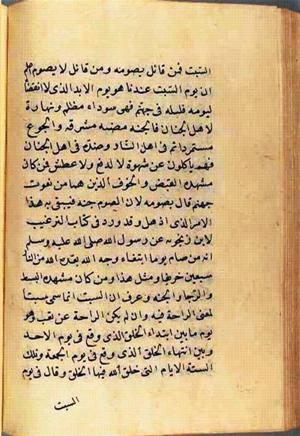 السبت فمن قائل بصومه ومن قائل لا يصوم اعلم
ان يوم السبت عندنا هو يوم الابد الذى لا انقضآ
ليومه فليله فى جهنم فهى سوداء مظلمة ونهاره
لاهل الجنان فالجنه مضيئة مشرقة والجوع
مستمر دائم فى اهل النار وضده فى اهل الجنان
فهم ياكلون عن شهوة لا لدفع ولا عطش فمن كان
مشهده القبض والخوف الذين هما من نعوت
جهنم قال بصومه لان الصوم جنه فيتقى به هذا
الامر الذى اذهله وقد ورد فى كتاب الترغيب
لابن زنجويه عن رسول الله صلى الله عليه وسلم
انه من صام يوما ابتغاء وجه الله بعده الله من النار
سبعين خريفا ومثل هذا ومن كان مشهده البسط
والرجا والجنه وعرف ان السبت انما سمى سبتا
لمعنى الراحة فيه وان لم يكن الراحة عن تعب وهو
يوم ما بين ابتداء الخلق الذى وقع فى يوم الاحد
وبين انتهاء الخلق الذى وقع فى يوم الجمعة وتلك
الستة الايام التى خلق الله فيها الخلق وقال فى يوم
السبت